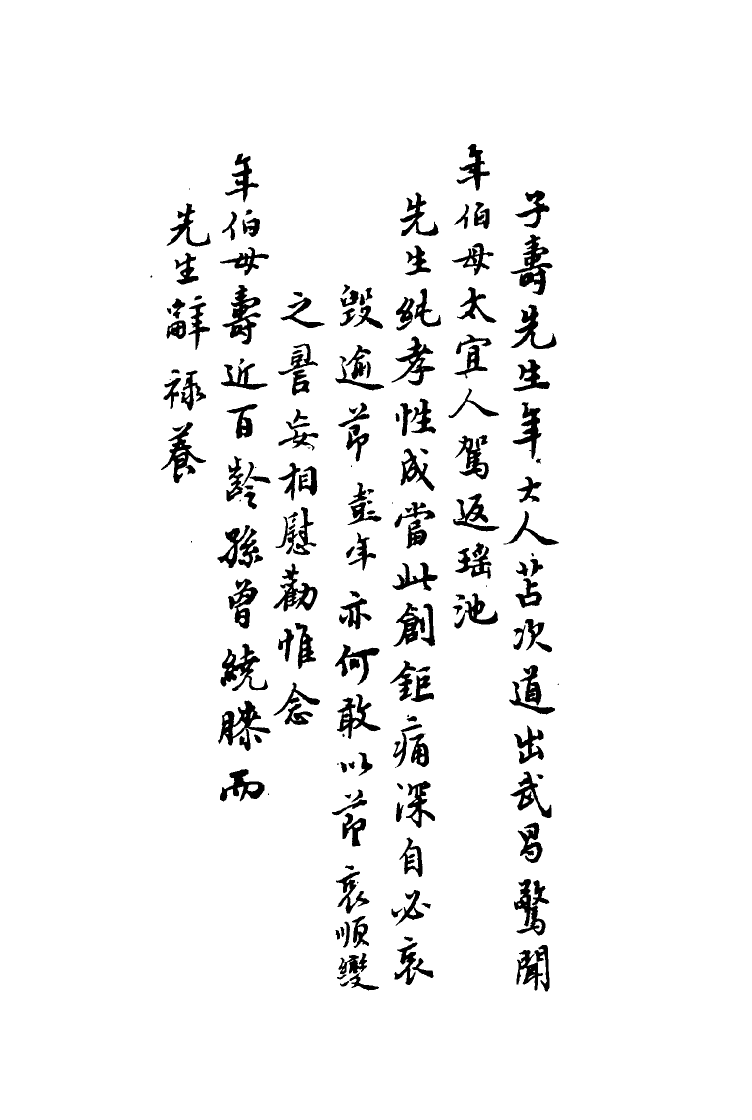 子壽先生年大人苫次道出武昌驚聞
年伯母太宜人駕返瑤池
先生純孝性成當此創鉅痛深自必哀
毀逾節彭年亦何敢以節哀順變
之詈妄相慰勸惟念
年伯母壽近百齡孫曾繞膝而
先生辭祿養